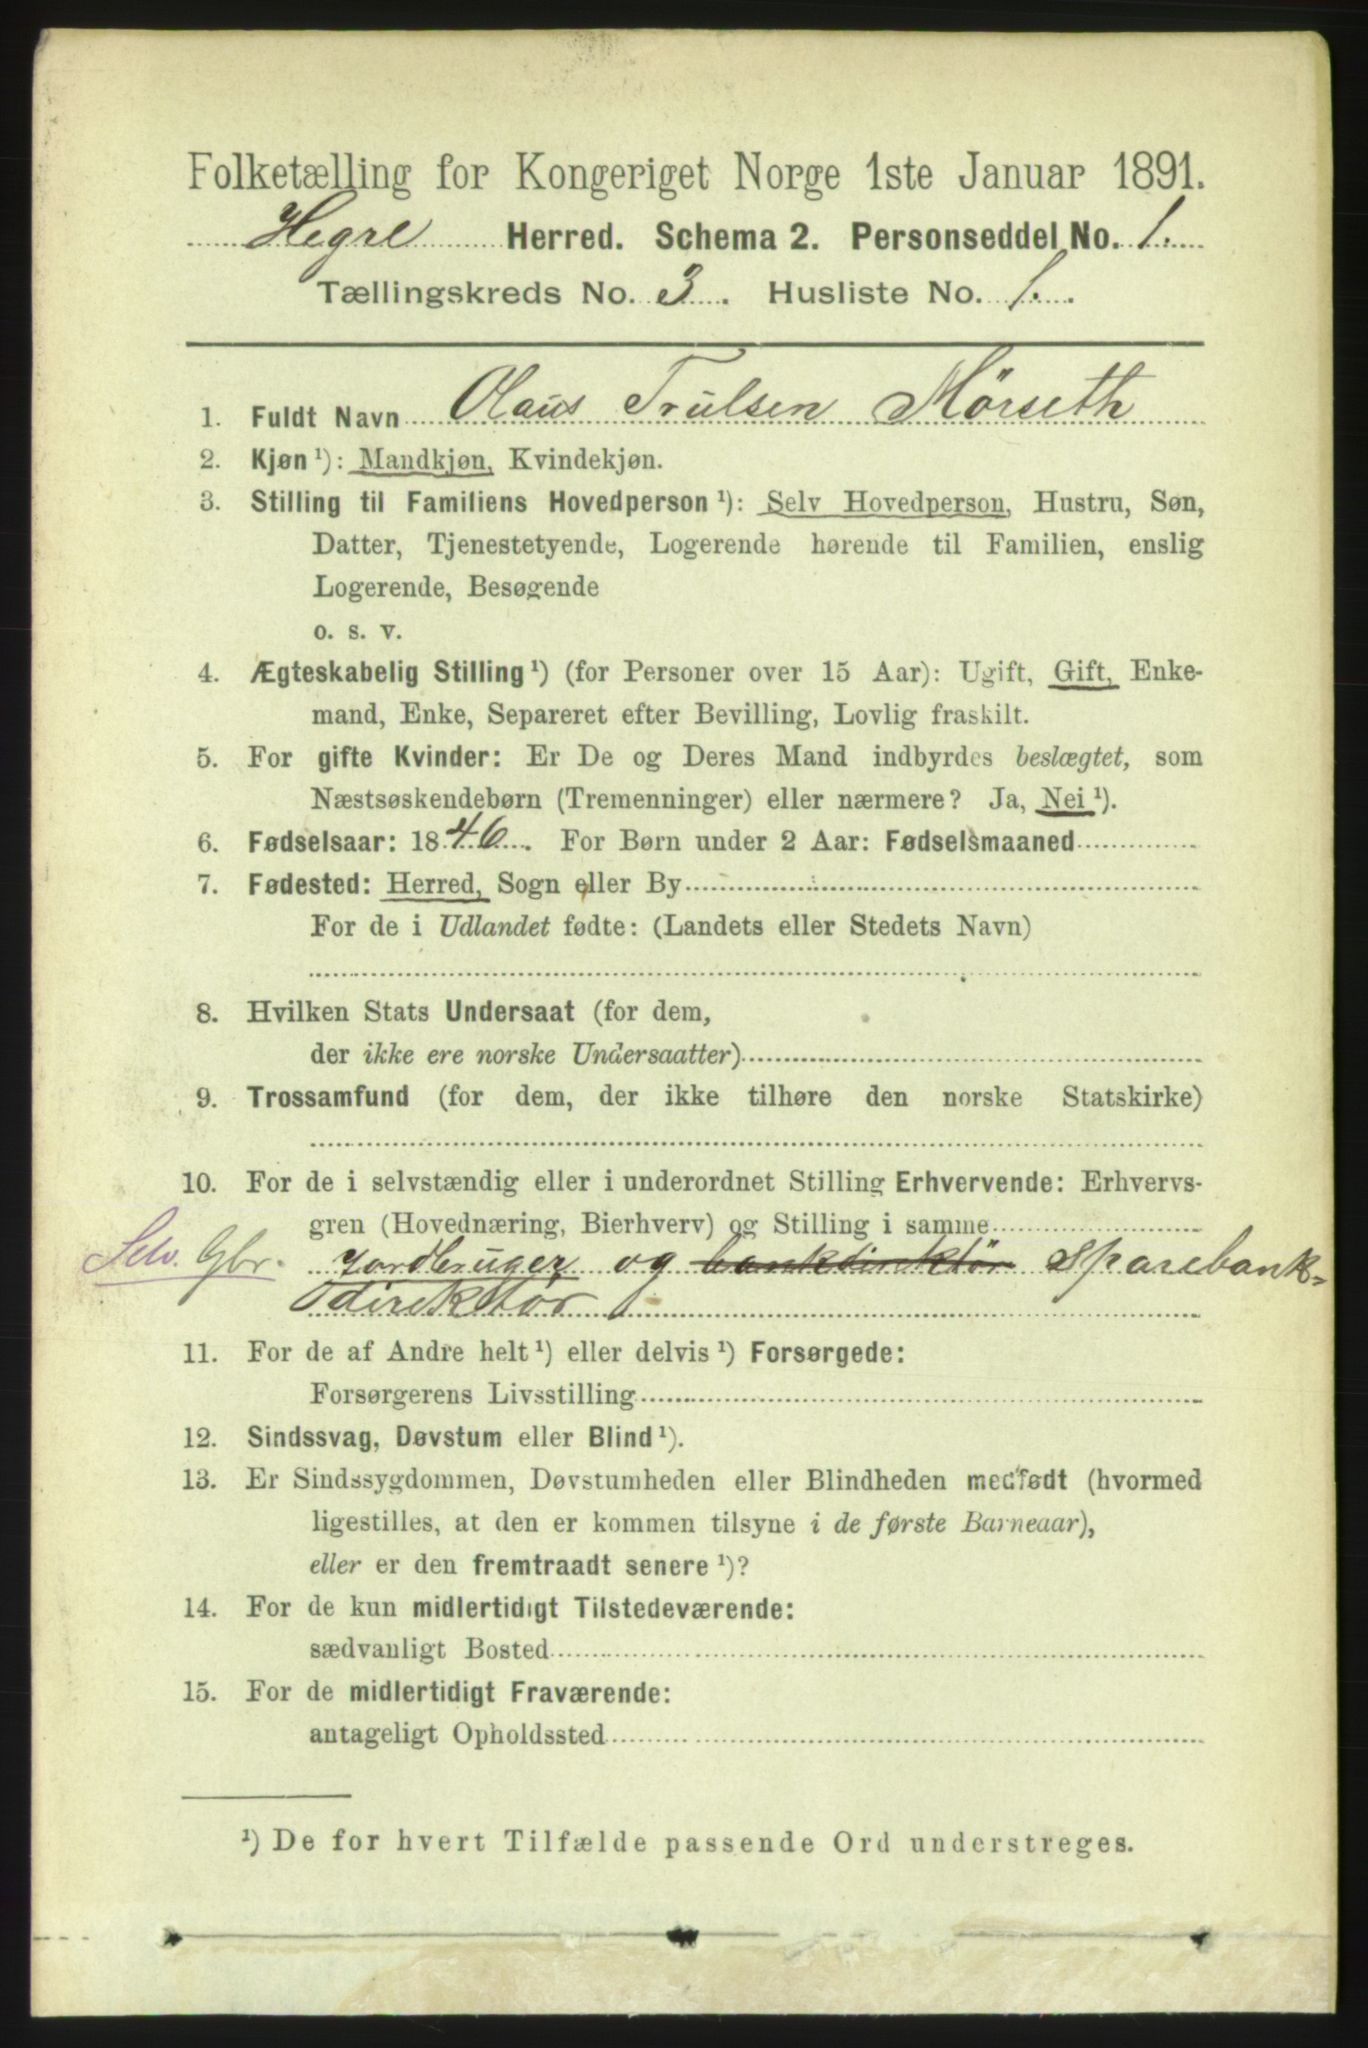 Folketælling for Kongeriget Norge 1ste Januar 1891.
Hegre Herred. Schema 2. Personseddel No. 1.
Tællingskreds No. 3. Husliste No. 1.
1. Fuldt Navn Olaus Trulsen Mørseth
2. Kjøn ¹): Mandkjøn, Kvindekjøn.
3. Stilling til Familiens Hovedperson ¹): Selv Hovedperson, Hustru, Søn,
Datter, Tjenestetyende, Logerende hørende til Familien, enslig
Logerende, Besøgende
o. s. v.
4. Ægteskabelig Stilling ¹) (for Personer over 15 Aar): Ugift, Gift, Enke-
mand, Enke, Separeret efter Bevilling, Lovlig fraskilt.
5. For gifte Kvinder: Er De og Deres Mand indbyrdes beslægtet, som
Næstsøskendebørn (Tremenninger) eller nærmere? Ja, Nei ¹).
6. Fødselsaar: 1846. For Børn under 2 Aar: Fødselsmaaned
7. Fødested: Herred, Sogn eller By
For de i Udlandet fødte: (Landets eller Stedets Navn)
8. Hvilken Stats Undersaat (for dem,
der ikke ere norske Undersaatter)
9. Trossamfund (for dem, der ikke tilhøre den norske Statskirke)
10. For de i selvstændig eller i underordnet Stilling Erhvervende: Erhvervs-
gren (Hovednæring, Bierhverv) og Stilling i samme
Selv. Gbr. Jordbruger og bankdirektør Sparebank=
direktør
11. For de af Andre helt ¹) eller delvis ¹) Forsørgede:
Forsørgerens Livsstilling
12. Sindssvag, Døvstum eller Blind ¹).
13. Er Sindssygdommen, Døvstumheden eller Blindheden medfødt (hvormed
ligestilles, at den er kommen tilsyne i de første Barneaar),
eller er den fremtraadt senere ¹)?
14. For de kun midlertidigt Tilstedeværende:
sædvanligt Bosted
15. For de midlertidigt Fraværende:
antageligt Opholdssted
¹) De for hvert Tilfælde passende Ord understreges.